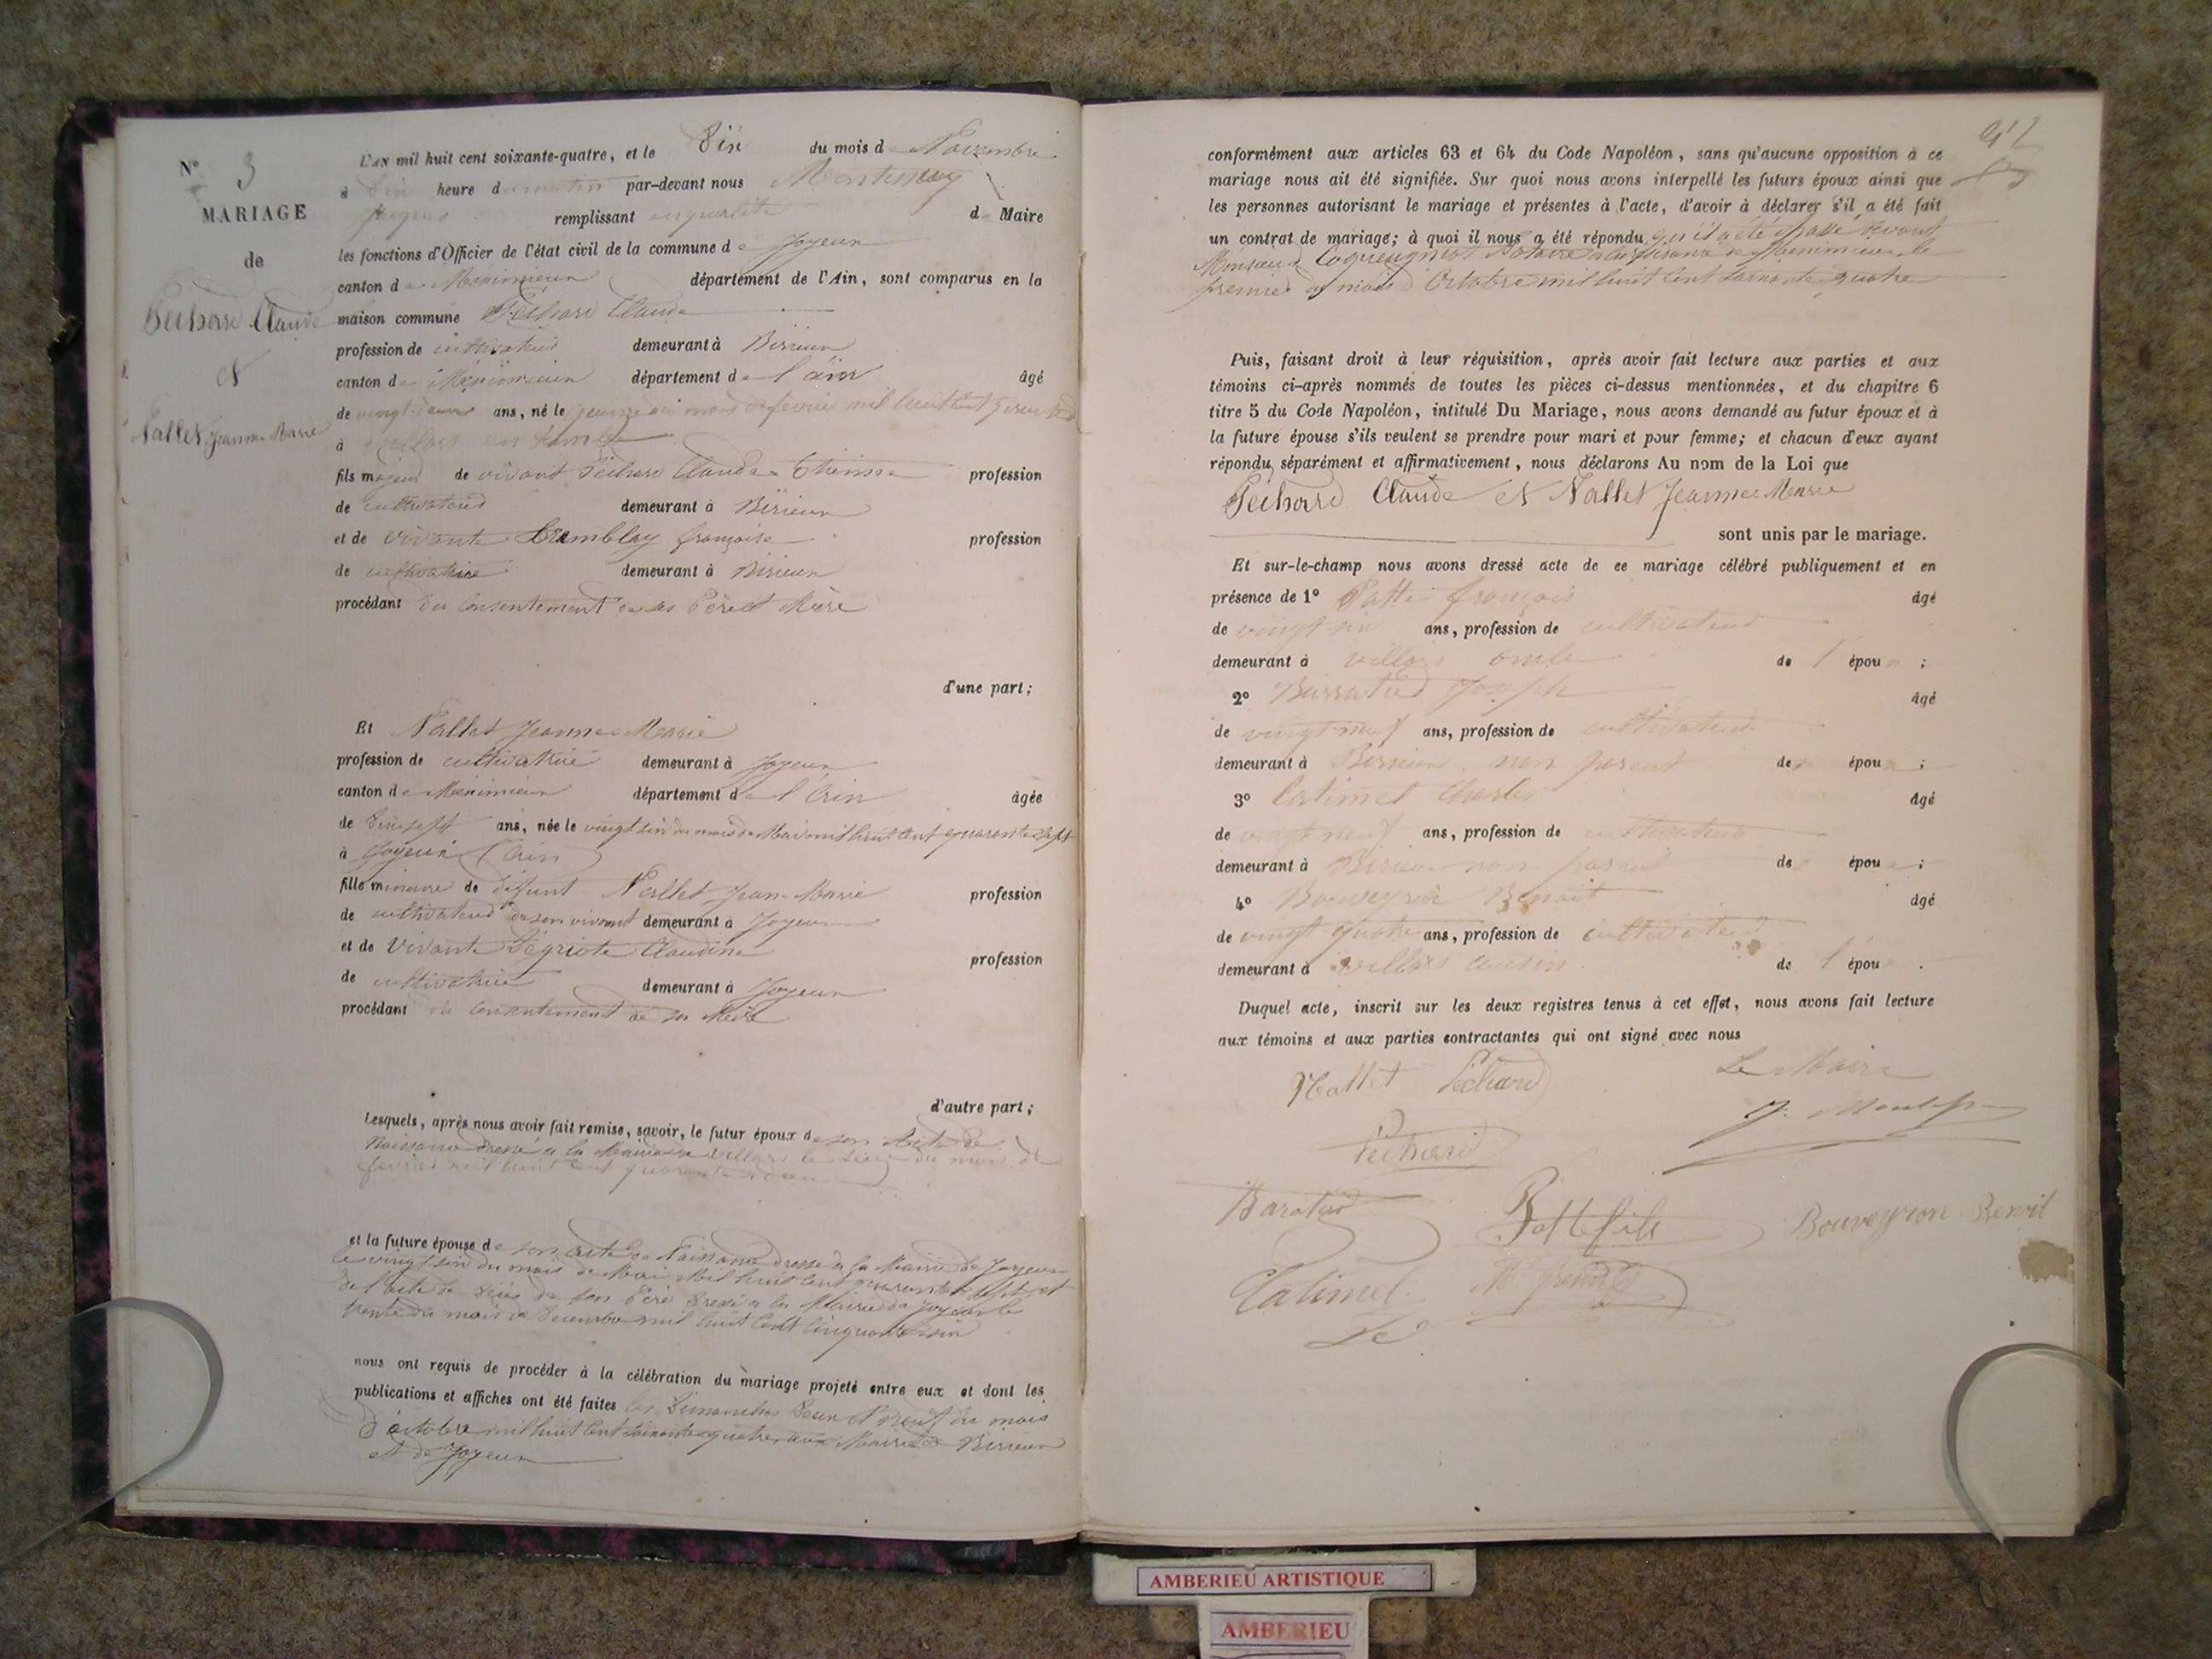 N° 3
MARIAGE
de
Péchard Claude
et
Nallet Jeanne Marie
L'AN mil huit cent soixante-quatre, et le Dix du mois de Novembre
à Dix heure du matin par-devant nous
remplissant en qualité de Maire
les fonctions d'Officier de l'état civil de la commune de Joyeux
canton de Meximieux département de l'Ain, sont comparus en la
maison commune Péchard Claude
profession de cultivateur demeurant à Birieux
canton de Méximieux département de l'ain âgé
de vingt deux ans, né le du mois de fevrier mil huit cent
à Villars
fils majeur de vivant Péchard Claude Etienne profession
de cultivateur demeurant à Birieux
et de vivante Tremblay françoise profession
de cultivatrice demeurant à Birieux
procédant du Consentement de ses Père et Mère
d'une part;
Et Nallet Jeanne Marie
profession de cultivatrice demeurant à Joyeux
canton de Méximieux département de l'Ain âgée
de Dix sept ans, née le vingt six du mois de Mai mil huit cent quarante sept
à Joyeux (Ain)
fille mineure de défunt Nallet Jean-Marie profession
de cultivateur de son vivant demeurant à Joyeux
et de Vivante Pégriote Claudine profession
de cultivatrice demeurant à Joyeux
procédant du Consentement de sa Mère
d'autre part;
Lesquels, après nous avoir fait remise, savoir, le futur époux de son Acte de
Naissance dressé à la Mairie de Villars le seize du mois de
fevrier mil huit cent quarante deux
et la future épouse de son acte de Naissance dressé à la Mairie de Joyeux
le vingt six du mois de Mai Mil huit cent quarante sept et
de l'acte de décès de son Père dressé à la Mairie de Joyeux le
trente du mois de Decembre mil huit cent cinquante six
nous ont requis de procéder à la célébration du mariage projeté entre eux et dont les
publications et affiches ont été faites les Dimanches Deux et neuf du mois
d'octobre mil huit cent soixante quatre aux Mairies de Birieux
et de Joyeux
conformément aux articles 63 et 64 du Code Napoléon, sans qu'aucune opposition à ce
mariage nous ait été signifiée. Sur quoi nous avons interpellé les futurs époux ainsi que
les personnes autorisant le mariage et présentes à l'acte, d'avoir à déclarer s'il a été fait
un contrat de mariage; à quoi il nous a été répondu qu'il a été passé devant
Monsieur Coqueugniot Notaire à la résidence de Meximieux le
premier du mois d'Octobre mil huit cent soixante quatre
Puis, faisant droit à leur réquisition, après avoir fait lecture aux parties et aux
témoins ci-après nommés de toutes les pièces ci-dessus mentionnées, et du chapitre 6
titre 5 du Code Napoléon, intitulé Du Mariage, nous avons demandé au futur époux et à
la future épouse s'ils veulent se prendre pour mari et pour femme; et chacun d'eux ayant
répondu séparément et affirmativement, nous déclarons Au nom de la Loi que
Péchard Claude et Nallet Jeanne Marie
sont unis par le mariage.
Et sur-le-champ nous avons dressé acte de ce mariage célébré publiquement et en
présence de 1° Patte françois âgé
de vingt six ans, profession de cultivateur
demeurant à villars de l'époux;
2° Joseph âgé
de vingt neuf ans, profession de cultivateur
demeurant à Birieux non parent des époux;
3° Catimel Charles âgé
de vingt neuf ans, profession de cultivateur
demeurant à Birieux non parent des époux;
4° Bouveyron Benoit âgé
de vingt quatre ans, profession de cultivateur
demeurant à villars cousin de l'époux.
Duquel acte, inscrit sur les deux registres tenus à cet effet, nous avons fait lecture
aux témoins et aux parties contractantes qui ont signé avec nous
Nallet Péchard Le Maire
Péchard
Patte fils Bouveyron Benoit
Catimel
AMBERIEU ARTISTIQUE
AMBERIEU